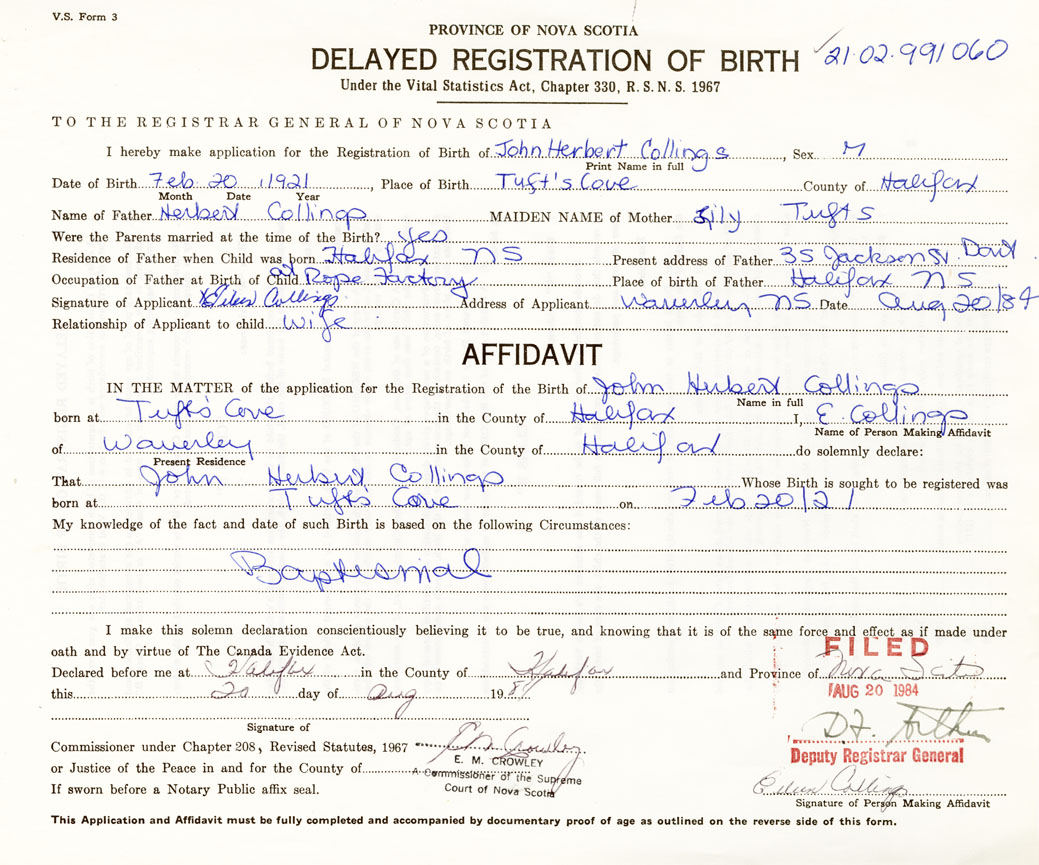 V.S. Form 3
PROVINCE OF NOVA SCOTIA
DELAYED REGISTRATION OF BIRTH 21·02·991060
Under the Vital Statistics Act, Chapter 330, R. S. N. S. 1967
TO THE REGISTRAR GENERAL OF NOVA SCOTIA
I hereby make application for the Registration of Birth of John Herbert Collings, Sex M
Print Name in full
Date of Birth Feb 20, 1921, Place of Birth Tuft's Cove County of Halifax
Month Date Year
Name of Father Herbert Collings MAIDEN NAME of Mother Lily Tufts
Were the Parents married at the time of the Birth? yes
Residence of Father when Child was born Halifax NS Present address of Father 35 Jackson St. Dart
Occupation of Father at Birth of Child at Rope Factory Place of birth of Father Halifax NS
Signature of Applicant Eileen Collings Address of Applicant Waverley NS. Date Aug 20/84
Relationship of Applicant to child Wife
AFFIDAVIT
IN THE MATTER of the application for the Registration of the Birth of John Herbert Collings
Name in full
born at Tufts Cove in the County of Halifax I, E. Collings
Name of Person Making Affidavit
of Waverley in the County of Halifax do solemnly declare:
Present Residence
That John Herbert Collings Whose Birth is sought to be registered was
born at Tufts Cove on Feb 20/21
My knowledge of the fact and date of such Birth is based on the following Circumstances:
Baptismal
I make this solemn declaration conscientiously believing it to be true, and knowing that it is of the same force and effect as if made under
oath and by virtue of The Canada Evidence Act.
FILED
Declared before me at Halifax in the County of Halifax and Province of Nova Scotia
this 20 day of Aug 1984
AUG 20 1984
Signature of
Commissioner under Chapter 208, Revised Statutes, 1967 E M Crowley
Deputy Registrar General
E. M. CROWLEY
or Justice of the Peace in and for the County of
A Commissioner of the Supreme
Court of Nova Scotia
If sworn before a Notary Public affix seal.
Eileen Collings
Signature of Person Making Affidavit
This Application and Affidavit must be fully completed and accompanied by documentary proof of age as outlined on the reverse side of this form.